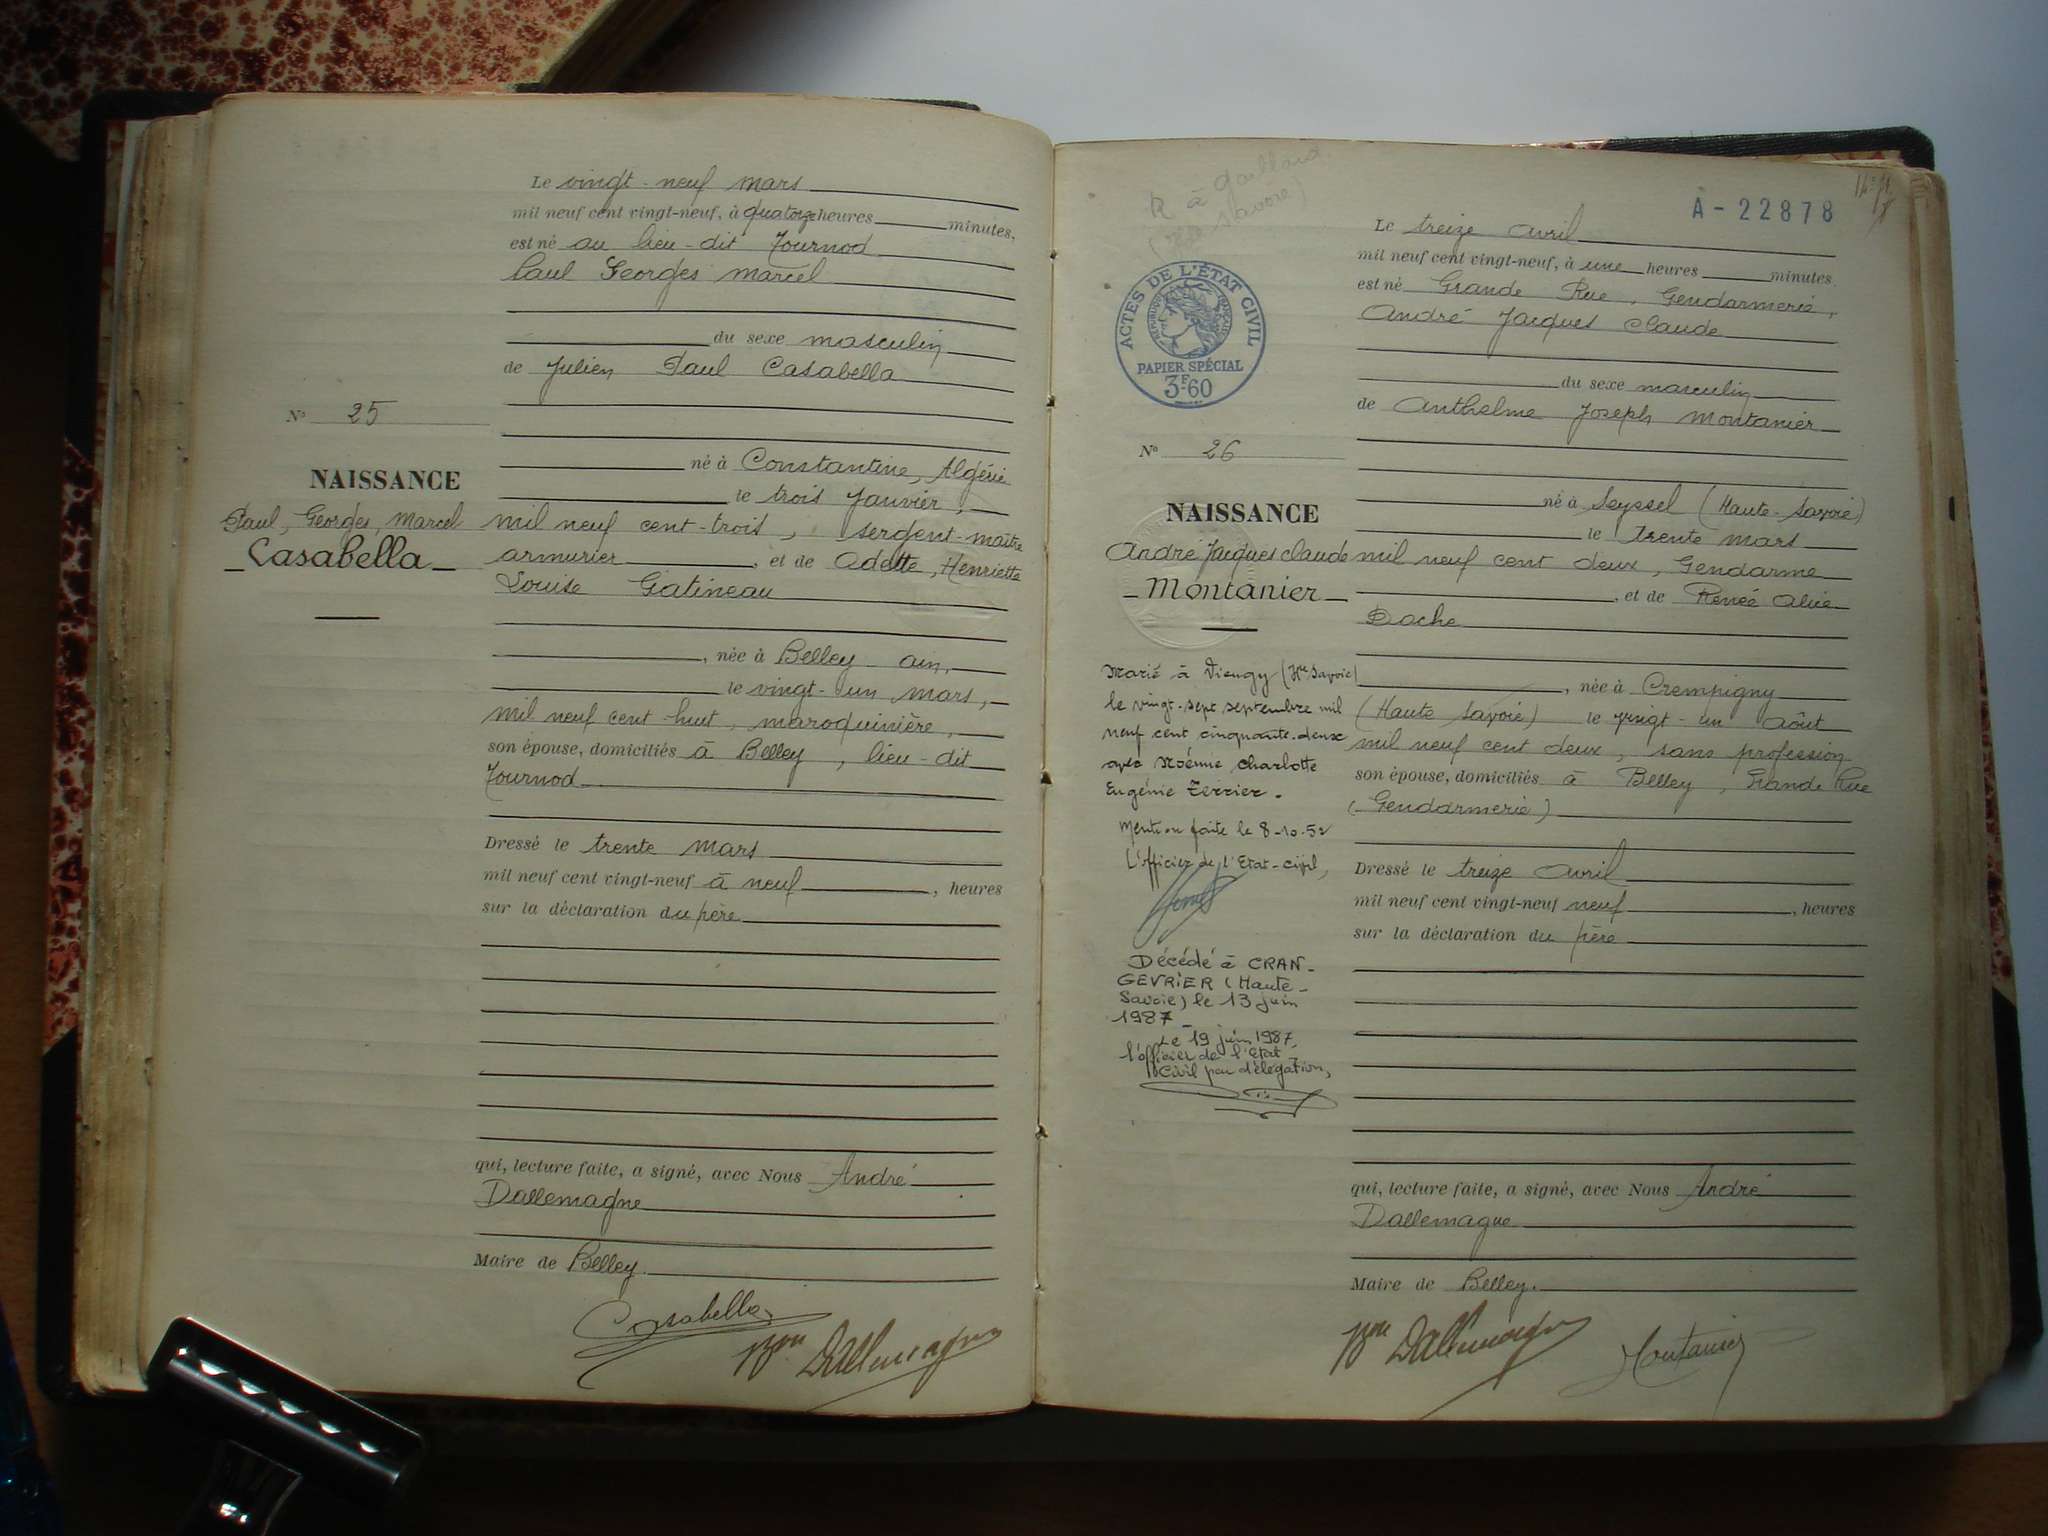 Le vingt-neuf mars
mil neuf cent vingt-neuf, à quatorze heures minutes,
est né au lieu-dit Tournod
Paul Georges Marcel
du sexe masculin
de Julien Paul Casabella
né à Constantine, Algérie
le trois Janvier,
mil neuf cent-trois, sergent-maître
armurier, et de Odette, Henriette
Louise Gatineau
, née à Belley - ain,
le vingt-un mars,
mil neuf cent huit, maroquinière,
son épouse, domiciliés à Belley, lieu-dit
Tournod
Dressé le trente mars
mil neuf cent vingt-neuf à neuf, heures
sur la déclaration du père
qui, lecture faite, a signé, avec Nous André
Dallemagne
Maire de Belley.
Casabella
Bon Dallemagne
N° 25
NAISSANCE
Paul, Georges, Marcel
Casabella
R à Gaillard
(Hte Savoie)
A-22878
ACTES DE L'ÉTAT CIVIL
RÉPUBLIQUE FRANÇAISE
PAPIER SPÉCIAL
3F.60
N° 26
NAISSANCE
André Jacques Claude
Montanier
Marié à Vieugy (Hte Savoie)
le vingt-sept septembre mil
neuf cent cinquante-deux
avec Noémie Charlotte
Eugénie Terrier.
Mention faite le 8-10-52
L'Officier de l'Etat-civil,
Décédé à CRAN-
GEVRIER (Haute-
Savoie) le 13 juin
1987
Le 19 juin 1987,
l'officier de l'Etat
Civil par délégation,
Le treize avril
mil neuf cent vingt-neuf, à une heures minutes.
est né Grande Rue, Gendarmerie,
André Jacques Claude
du sexe masculin
de Anthelme Joseph Montanier
né à Seyssel (Haute-Savoie)
le trente mars
mil neuf cent deux, Gendarme
, et de Renée Alice
Dache
, née à Crempigny
(Haute Savoie) le vingt-un août
mil neuf cent deux, sans profession
son épouse, domiciliés à Belley, Grande Rue
(Gendarmerie)
Dressé le treize avril
mil neuf cent vingt-neuf neuf, heures
sur la déclaration du père
qui, lecture faite, a signé, avec Nous André
Dallemagne
Maire de Belley.
Bon Dallemagne
Montanier